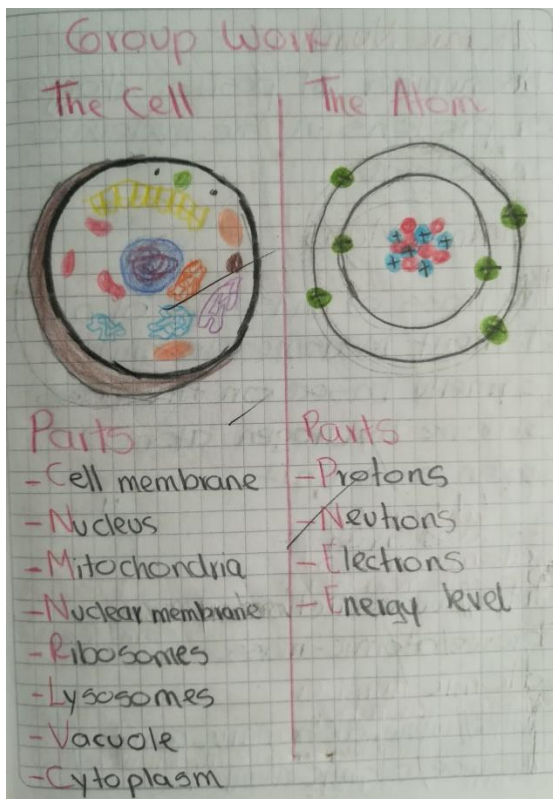 Group Work
The Cell
The Atom
Parts
-Cell membrane
-Nucleus
-Mitochondria
-Nuclear membrane
-Ribosomes
-Lysosomes
-Vacuole
-Cytoplasm
Parts
-Protons
-Neutrons
-Electrons
-Energy level